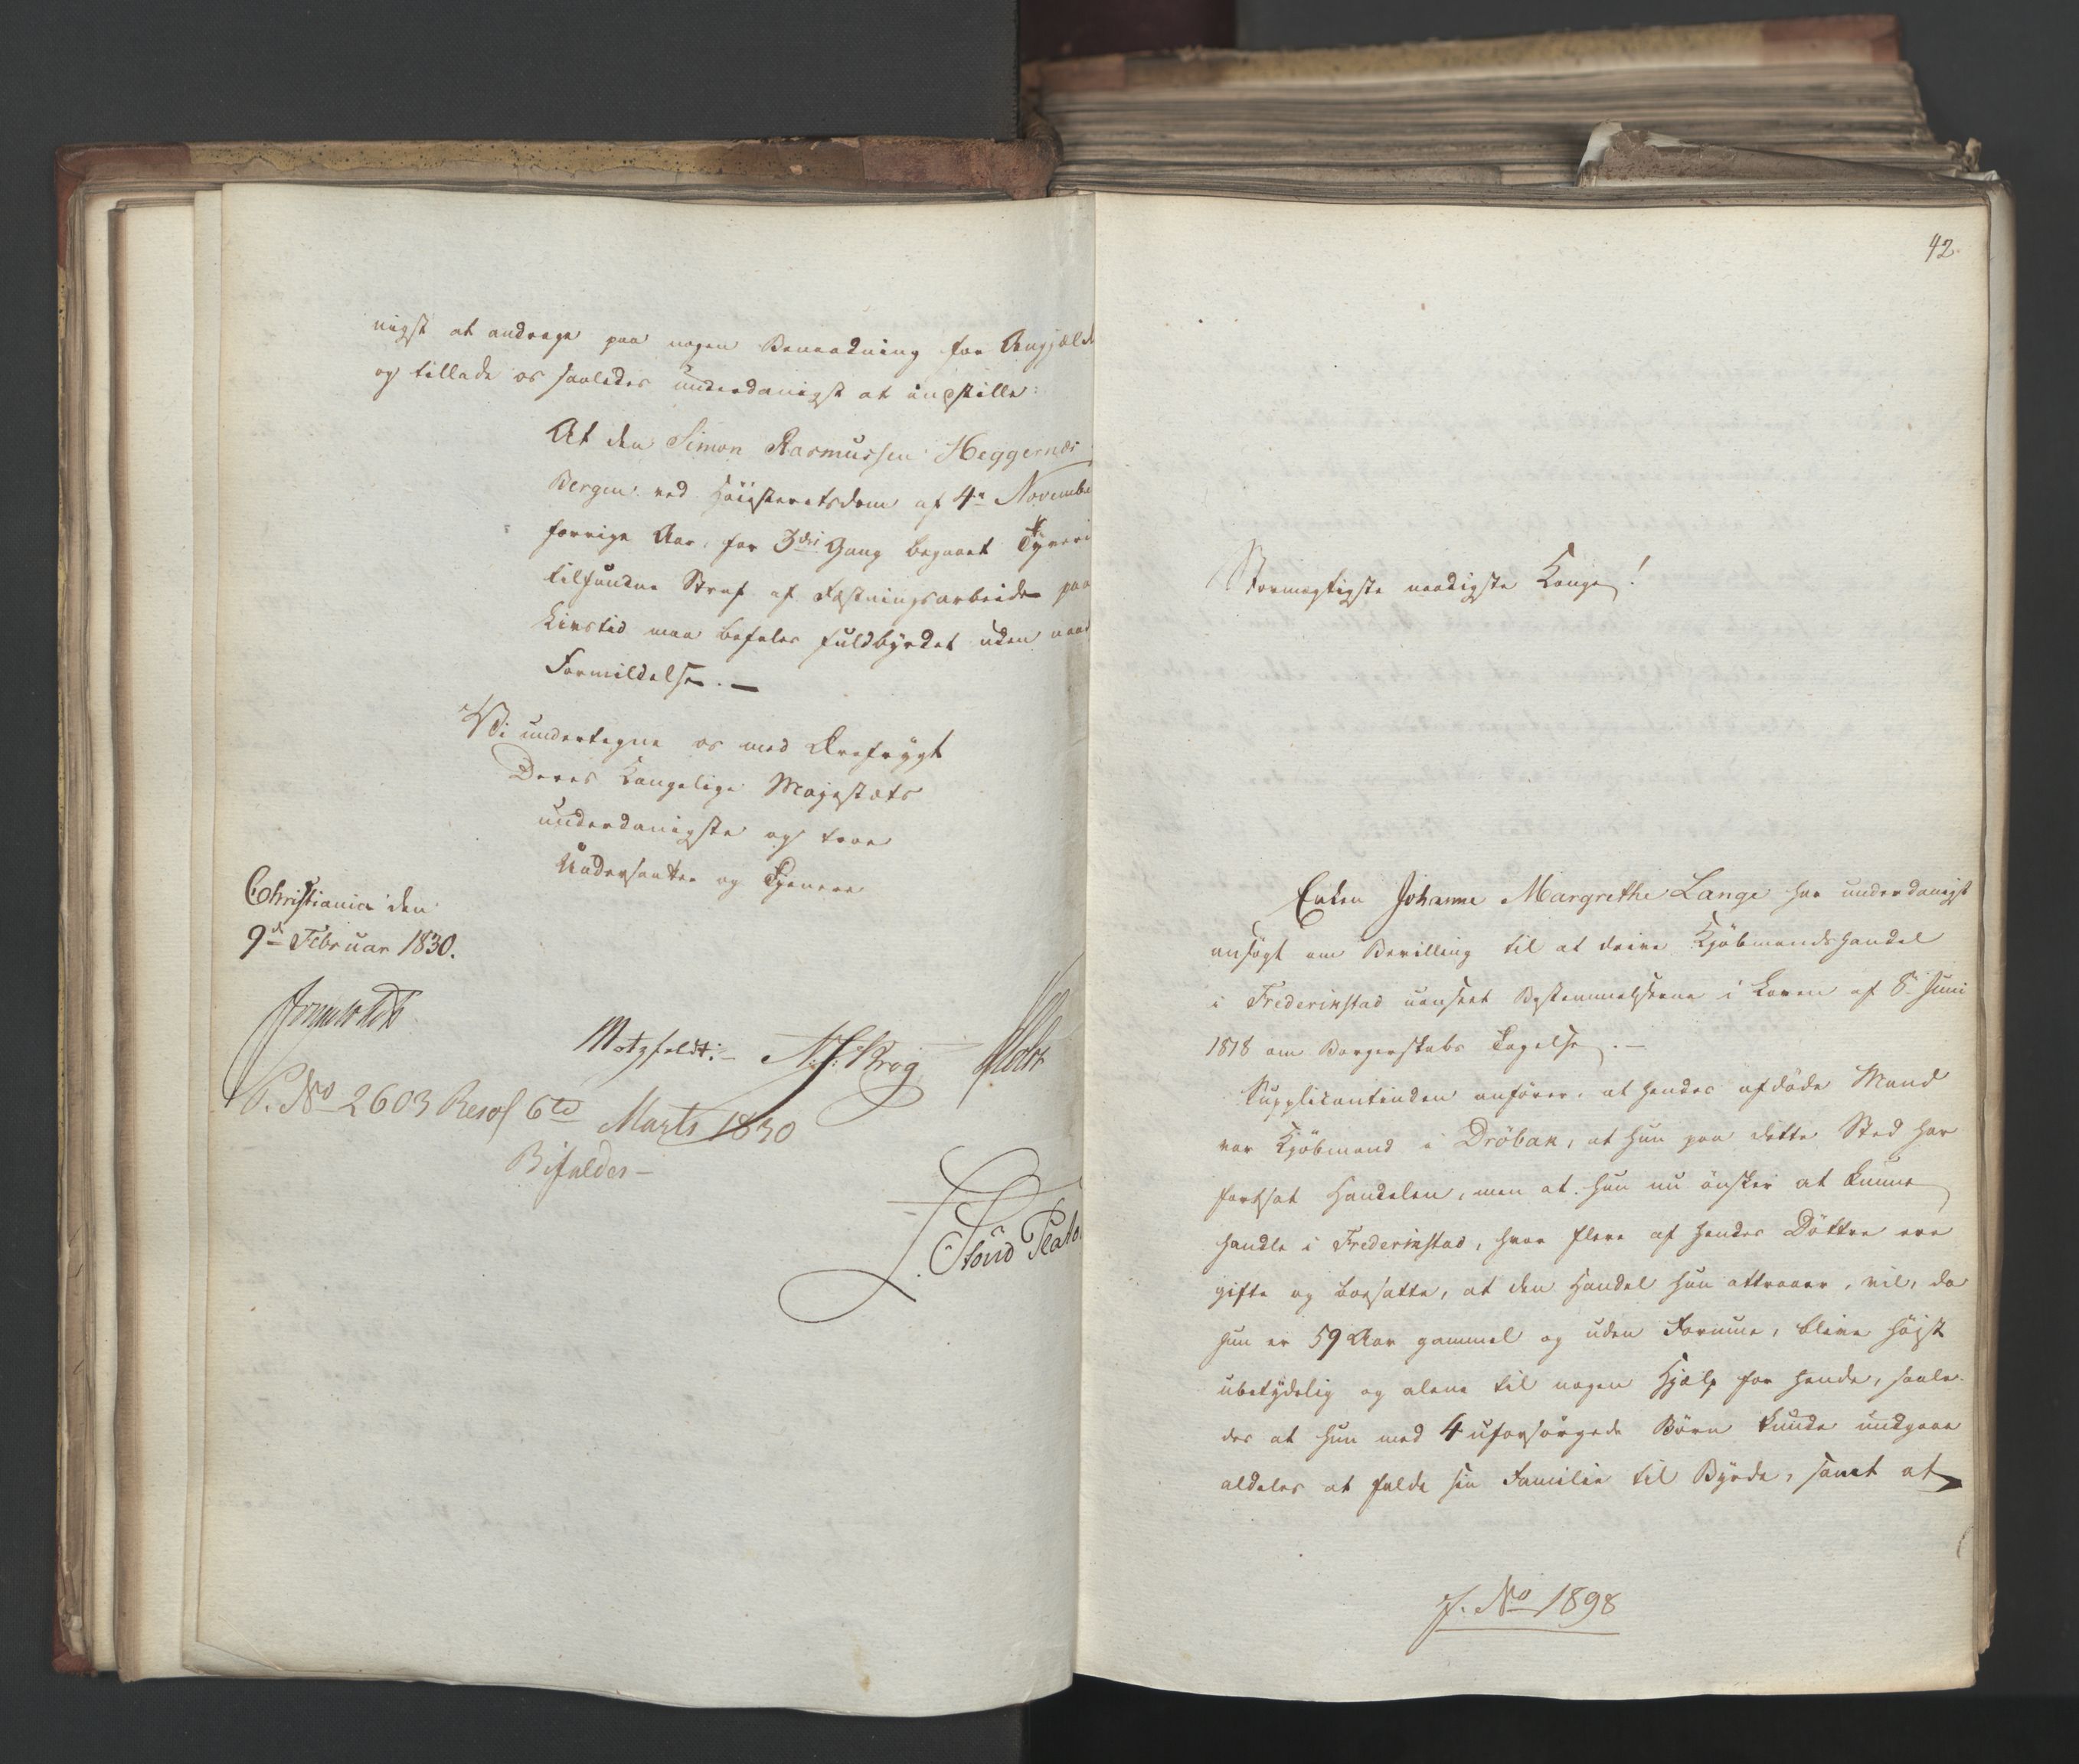 nigst at andrage paa nogen Benaadning for Angjæld
og tillade os saaledes underdanigst at indstille:
At den Simon Rasmussen Heggernæs
Bergen ved Höiesteretsdom af 4de Novembe
forrige Aar, for 3die Gang begaaet Tyveri
tilfundne Straf af Fæstningsarbeide paa
Livstid maa befales fuldbyrdet uden naad
Formildelse. —
Vi undertegne os med Ærefrygt
Deres Kongelige Majestæts
underdanigste og troe
Undersaatter og Tjenere
Christiania den
9de Februar 1830.
Motzfeldt. N. J. Krog Holst
P. No 2603 Resol 6te Marts 1830
Bifaldes —
42
Stormægtigste naadigste Konge!
Enken Johanne Margrethe Lange har underdanigst
ansögt om Bevilling til at drive Kjöbmandshandel
i Frederikstad uanseet Bestemmelserne i Loven af 8de Juni
1818 om Borgerskabs Tagelse. —
Supplicantinden anförer, at hendes afdöde Mand
var Kjöbmand i Dröbak, at hun paa dette Sted har
fortsat Handelen, men at hun nu önsker at kunne
handle i Frederikstad, hvor flere af hendes Döttre ere
gifte og bosatte, at den Handel hun attraaer, vil, da
hun er 59 Aar gammel og uden Formue, blive höist
ubetydelig og alene til nogen Hjælp for hende, saale-
des at hun med 4 uforsörgede Börn kunde undgaae
aldeles at falde sin Familie til Byrde, samt at
J. No 1898